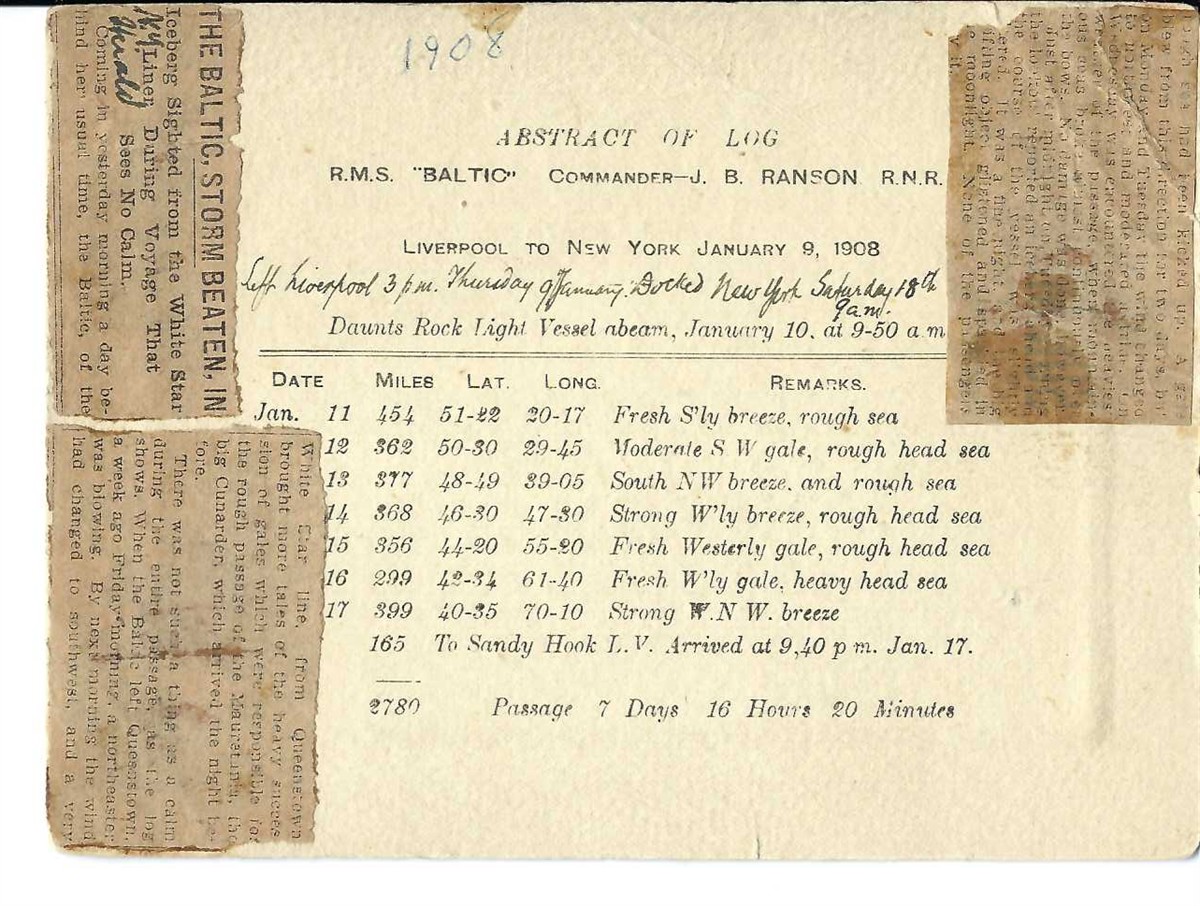 1908
ABSTRACT OF LOG
R.M.S. "BALTIC" COMMANDER—J. B. RANSON R.N.R.
LIVERPOOL TO NEW YORK JANUARY 9, 1908
Left Liverpool 3 pm. Thursday 9 January. Docked New York Saturday 18th
9 a.m.
Daunts Rock Light Vessel abeam, January 10, at 9-50 a m
DATE MILES LAT. LONG. REMARKS.
Jan. 11 454 51-22 20-17 Fresh S'ly breeze, rough sea
12 362 50-30 29-45 Moderate S W gale, rough head sea
13 377 48-49 39-05 South NW breeze, and rough sea
14 368 46-30 47-30 Strong W'ly breeze, rough head sea
15 356 44-20 55-20 Fresh Westerly gale, rough head sea
16 299 42-34 61-40 Fresh W'ly gale, heavy head sea
17 399 40-35 70-10 Strong W.N W. breeze
165 To Sandy Hook L.V. Arrived at 9,40 p m. Jan. 17.
2780 Passage 7 Days 16 Hours 20 Minutes
THE BALTIC, STORM BEATEN, IN
Iceberg Sighted from the White Star
Liner During Voyage That
Sees No Calm.
NY Herald
Coming in yesterday morning a day be-
hind her usual time, the Baltic, of the
White Star line, from Queenstown
brought more tales of the heavy succes
sion of gales which were responsible for
the rough passage of the Mauretania, the
big Cunarder, which arrived the night be-
fore.
There was not such a thing as a calm
during the entire passage, as the log
shows. When the Baltic left Queenstown,
a week ago Friday morning, a northeaster
was blowing. By next morning the wind
had changed to southwest, and a very
sea had been kicked up. A
from this direction for two days, but
on Monday and Tuesday the wind changed
to northwest and moderated a trifle. On
Wednesday was encountered the
of the passage, when
sea broke
the bows. No damage was done, however.
Just after midnight on
the lookout reported an iceberg ahead and
the course of the vessel was slightly
It was a fine night, and the
object glistened and sparkled in
moonlight. None of the passengers